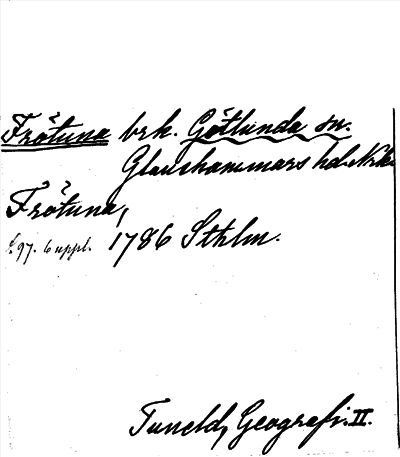 Frötuna brk. Götlunda sn.
Glanshammars hd. Nrke
Frötuna,
s. 97. 6 uppl. 1786 Sthlm.
Tuneld, Geografi. II.